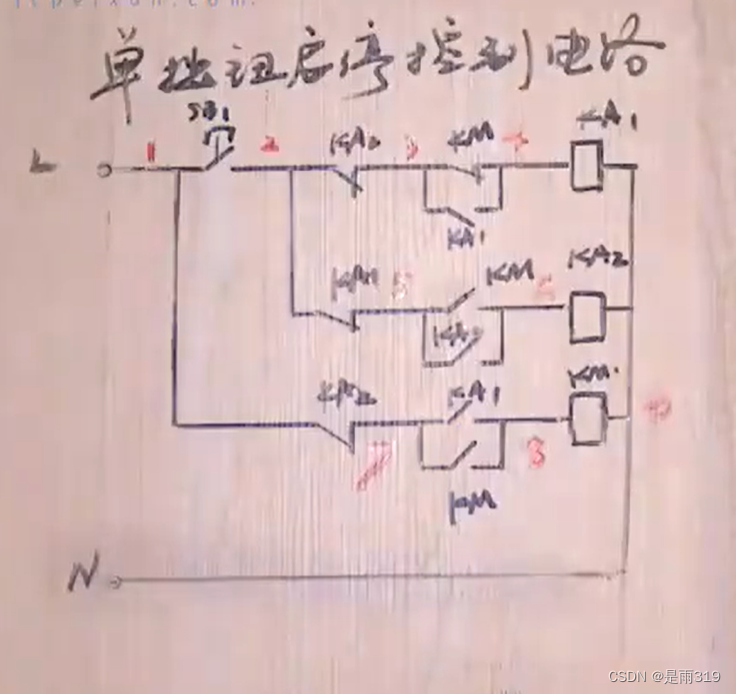 单按钮启停控制电路
SB1
KA1
L
1
2
KA2
3
KM
4
KA1
KA2
KA1
5
KM
6
KA2
KM
KA2
KA1
7
8
KM
N
CSDN @是雨319